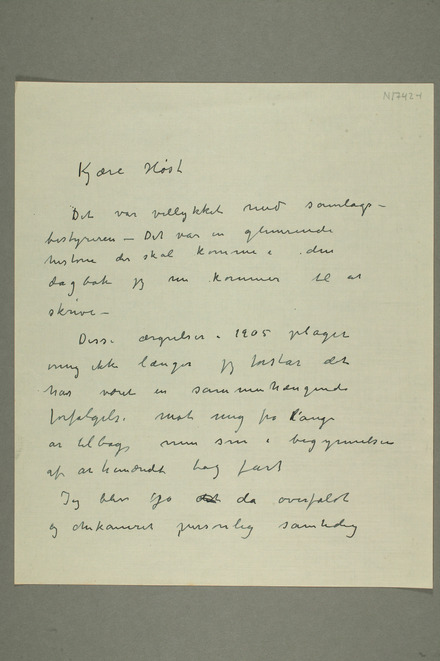 N/7424
Kjære Høst
Det var vellykket med samlags-
bestyreren — Det var en glimrende
historie der skal komme i den
dagbok jeg nu kommer til at
skrive —
Disse ærgrelser i 1905 plager
mig ikke længer jeg forstår det
har været en sammenhængende
forfølgelse mot mig fra lange
år tilbage men som i begyndelsen
af århundredet tog fart
Jeg blev jo da overfaldt
og chikaneret personlig samtidig